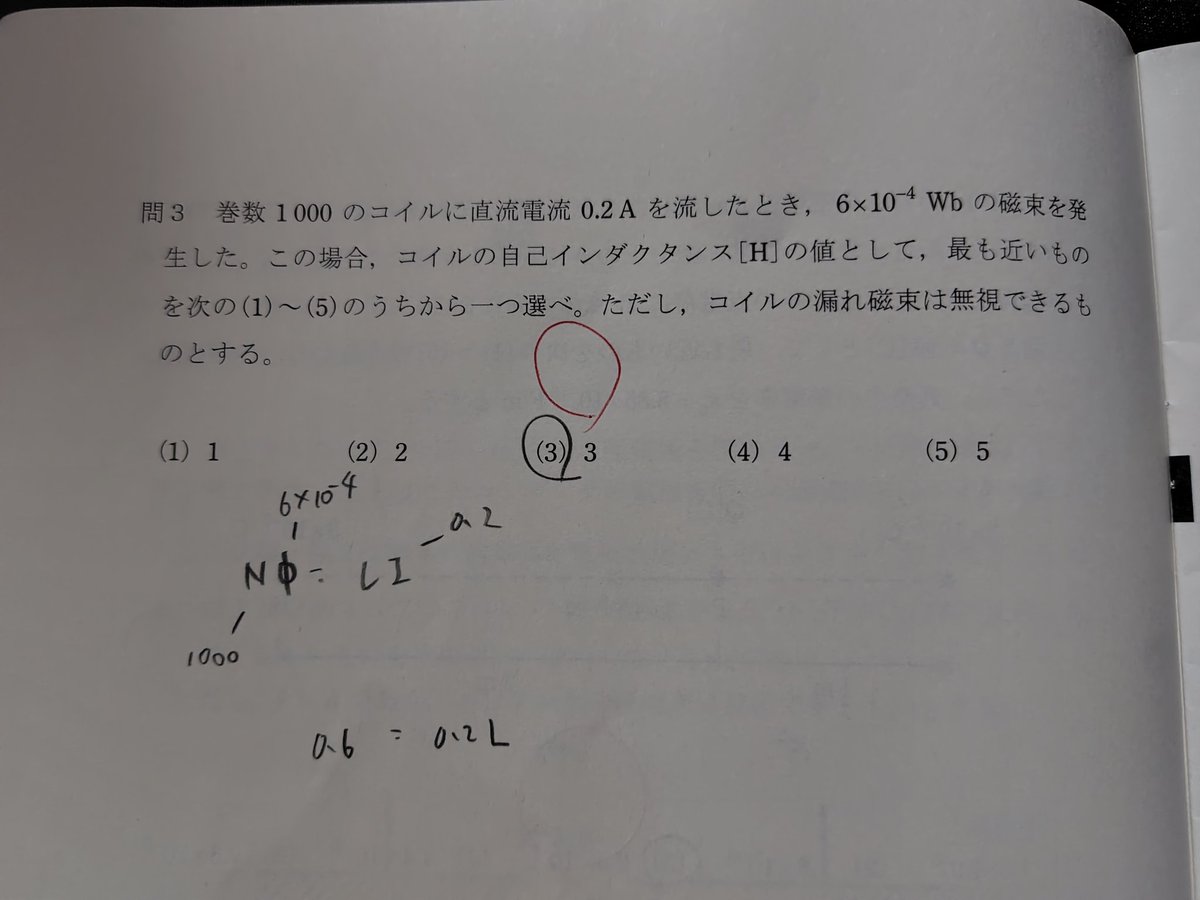 問3 巻数 1000 のコイルに直流電流 0.2 A を流したとき，6×10⁻⁴ Wb の磁束を発
生した。この場合，コイルの自己インダクタンス[H]の値として，最も近いもの
を次の(1)～(5)のうちから一つ選べ。ただし，コイルの漏れ磁束は無視できるも
のとする。
(1) 1 (2) 2 (3) 3 (4) 4 (5) 5
6×10⁻⁴
0.2
NΦ = LI
1000
0.6 = 0.2L